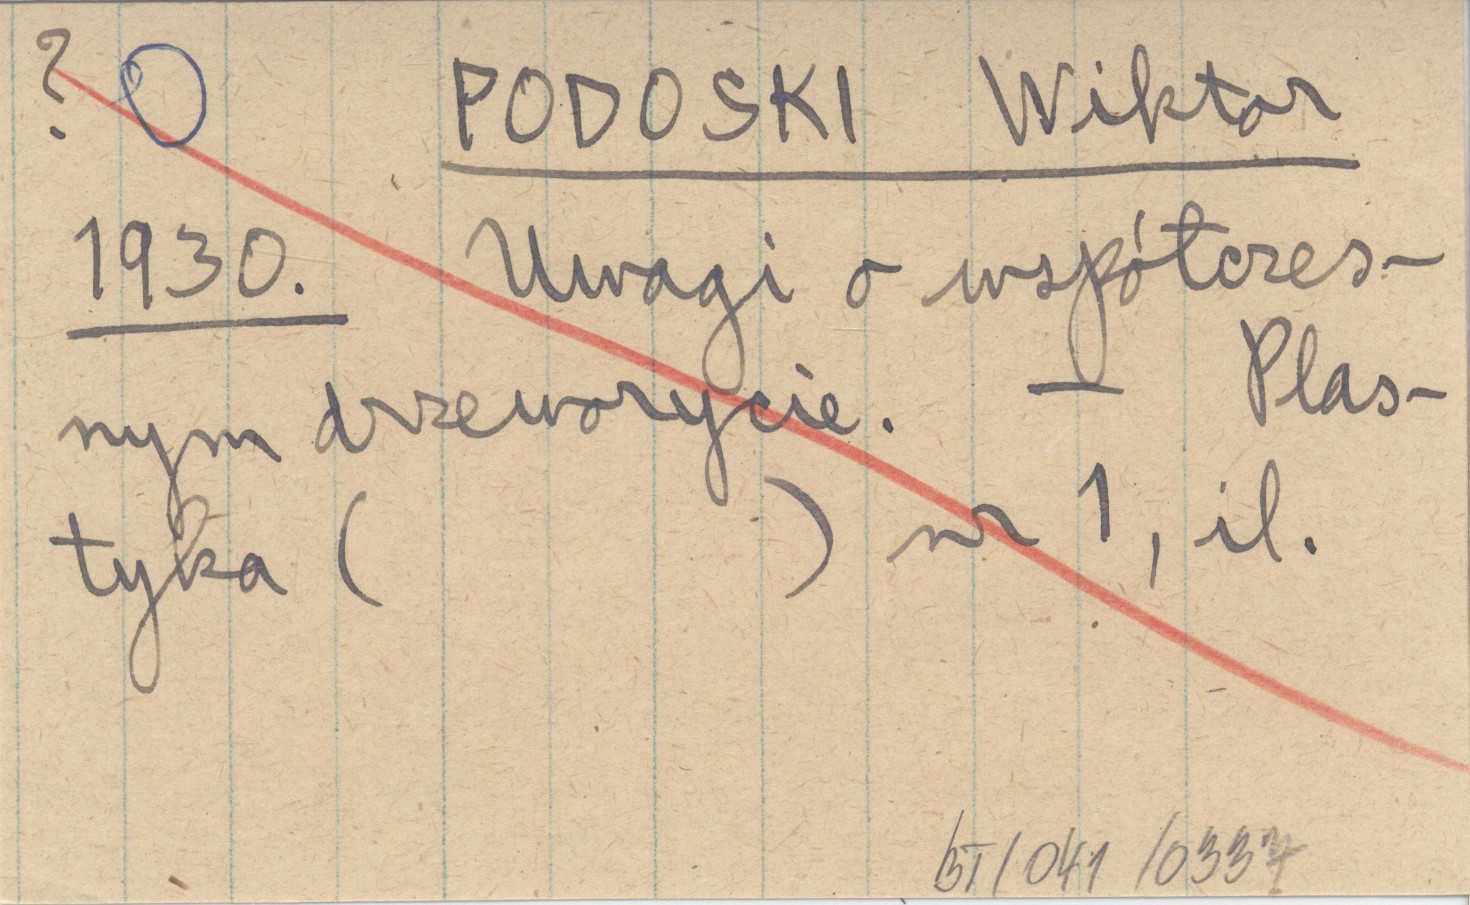 ? O PODOSKI Wiktor
1930. Uwagi o współczes-
nym drzeworycie. — Plas-
tyka ( ) nr 1, il.
BT/041/0337